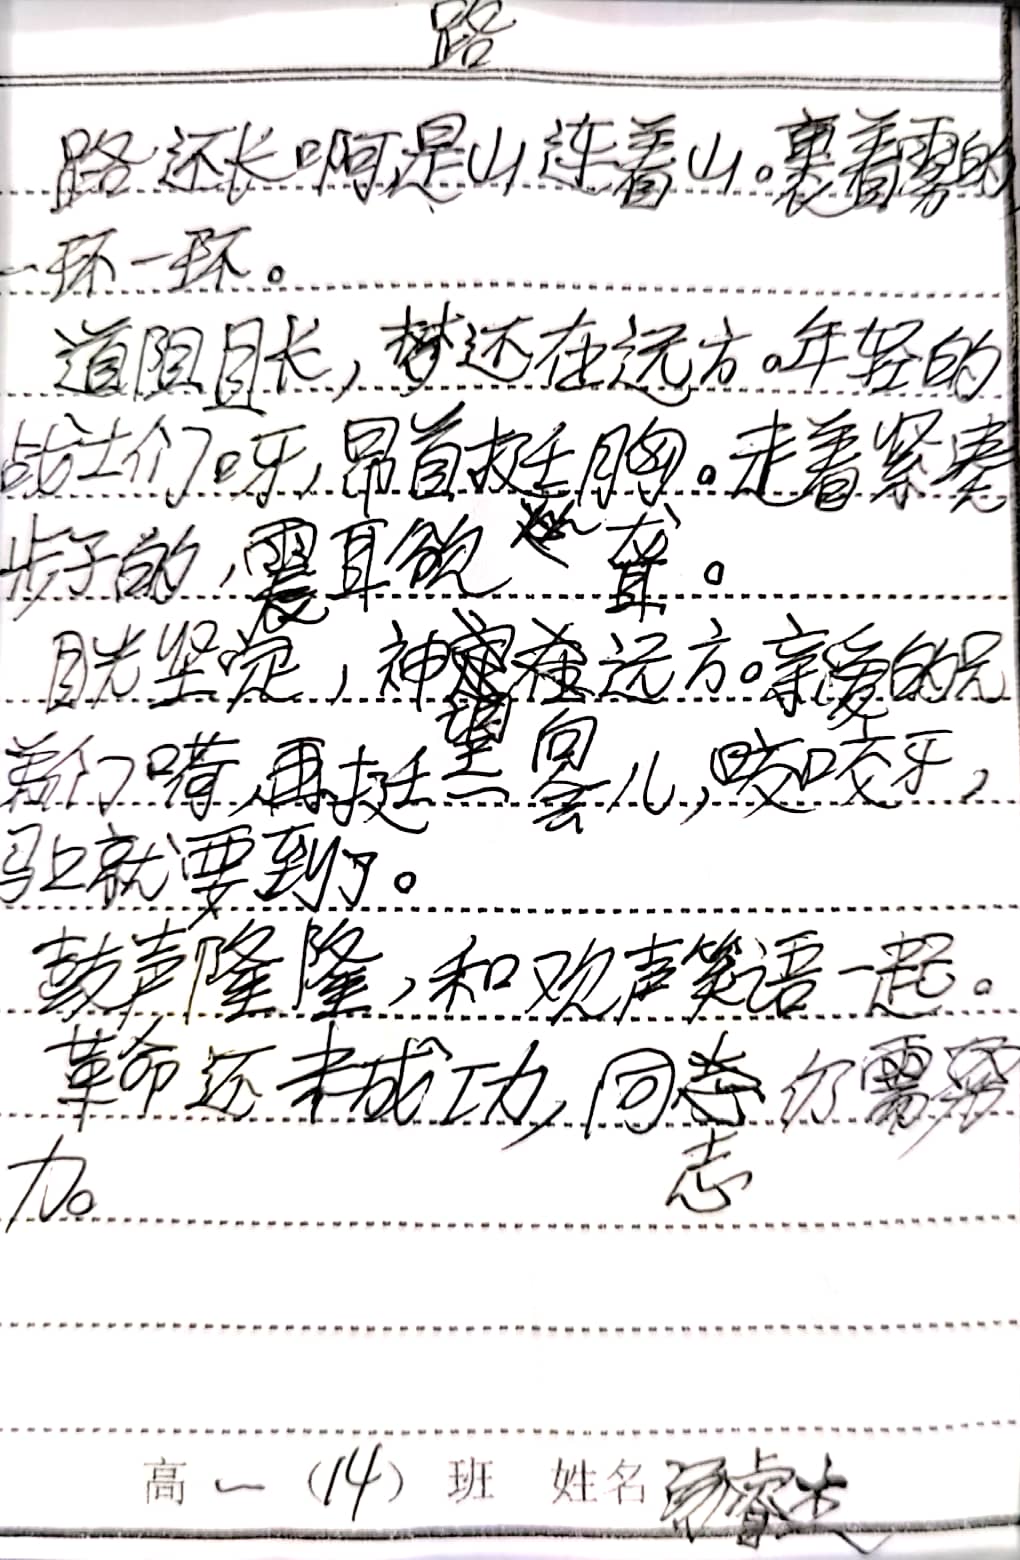 路
路还长啊是山连着山。裹着雾的
一环一环。
道阻且长，梦还在远方。年轻的
战士们呀，昂首挺胸。走着紧凑
步子的，震耳欲茸。
目光坚定，神望向远方。亲爱的兄
弟们嗬，再挺会儿，咬咬牙，
马上就要到了。
鼓声隆隆，和欢声笑语一起。
革命还未成功，同志仍需努
力。
高一（14）班 姓名 睿杰